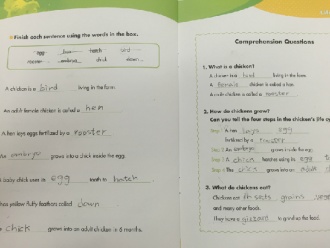 Finish each sentence using the words in the box.
egg hen hatch bird
rooster embryo chick down
A chicken is a bird living in the farm.
An adult female chicken is called a hen
A hen lays eggs fertilized by a rooster
An embryo grows into a chick inside the egg.
baby chick uses its egg tooth to hatch
yellow fluffy feathers called down
chick grows into an adult chicken in 6 months.
Comprehension Questions
1. What is a chicken?
A chicken is a bird living in the farm.
A female chicken is called a hen
A male chicken is called a rooster
2. How do chickens grow?
Can you tell the four steps in the chicken's life
Step 1 A hen lays egg
fertilized by a rooster
Step 2 An embryo grows inside the egg.
Step 3 A chick hatches using its egg
Step 4 The chick grows into an adult
3. What do chickens eat?
Chickens eat insects grains
and many other foods.
They have a gizzard to grind up the food.